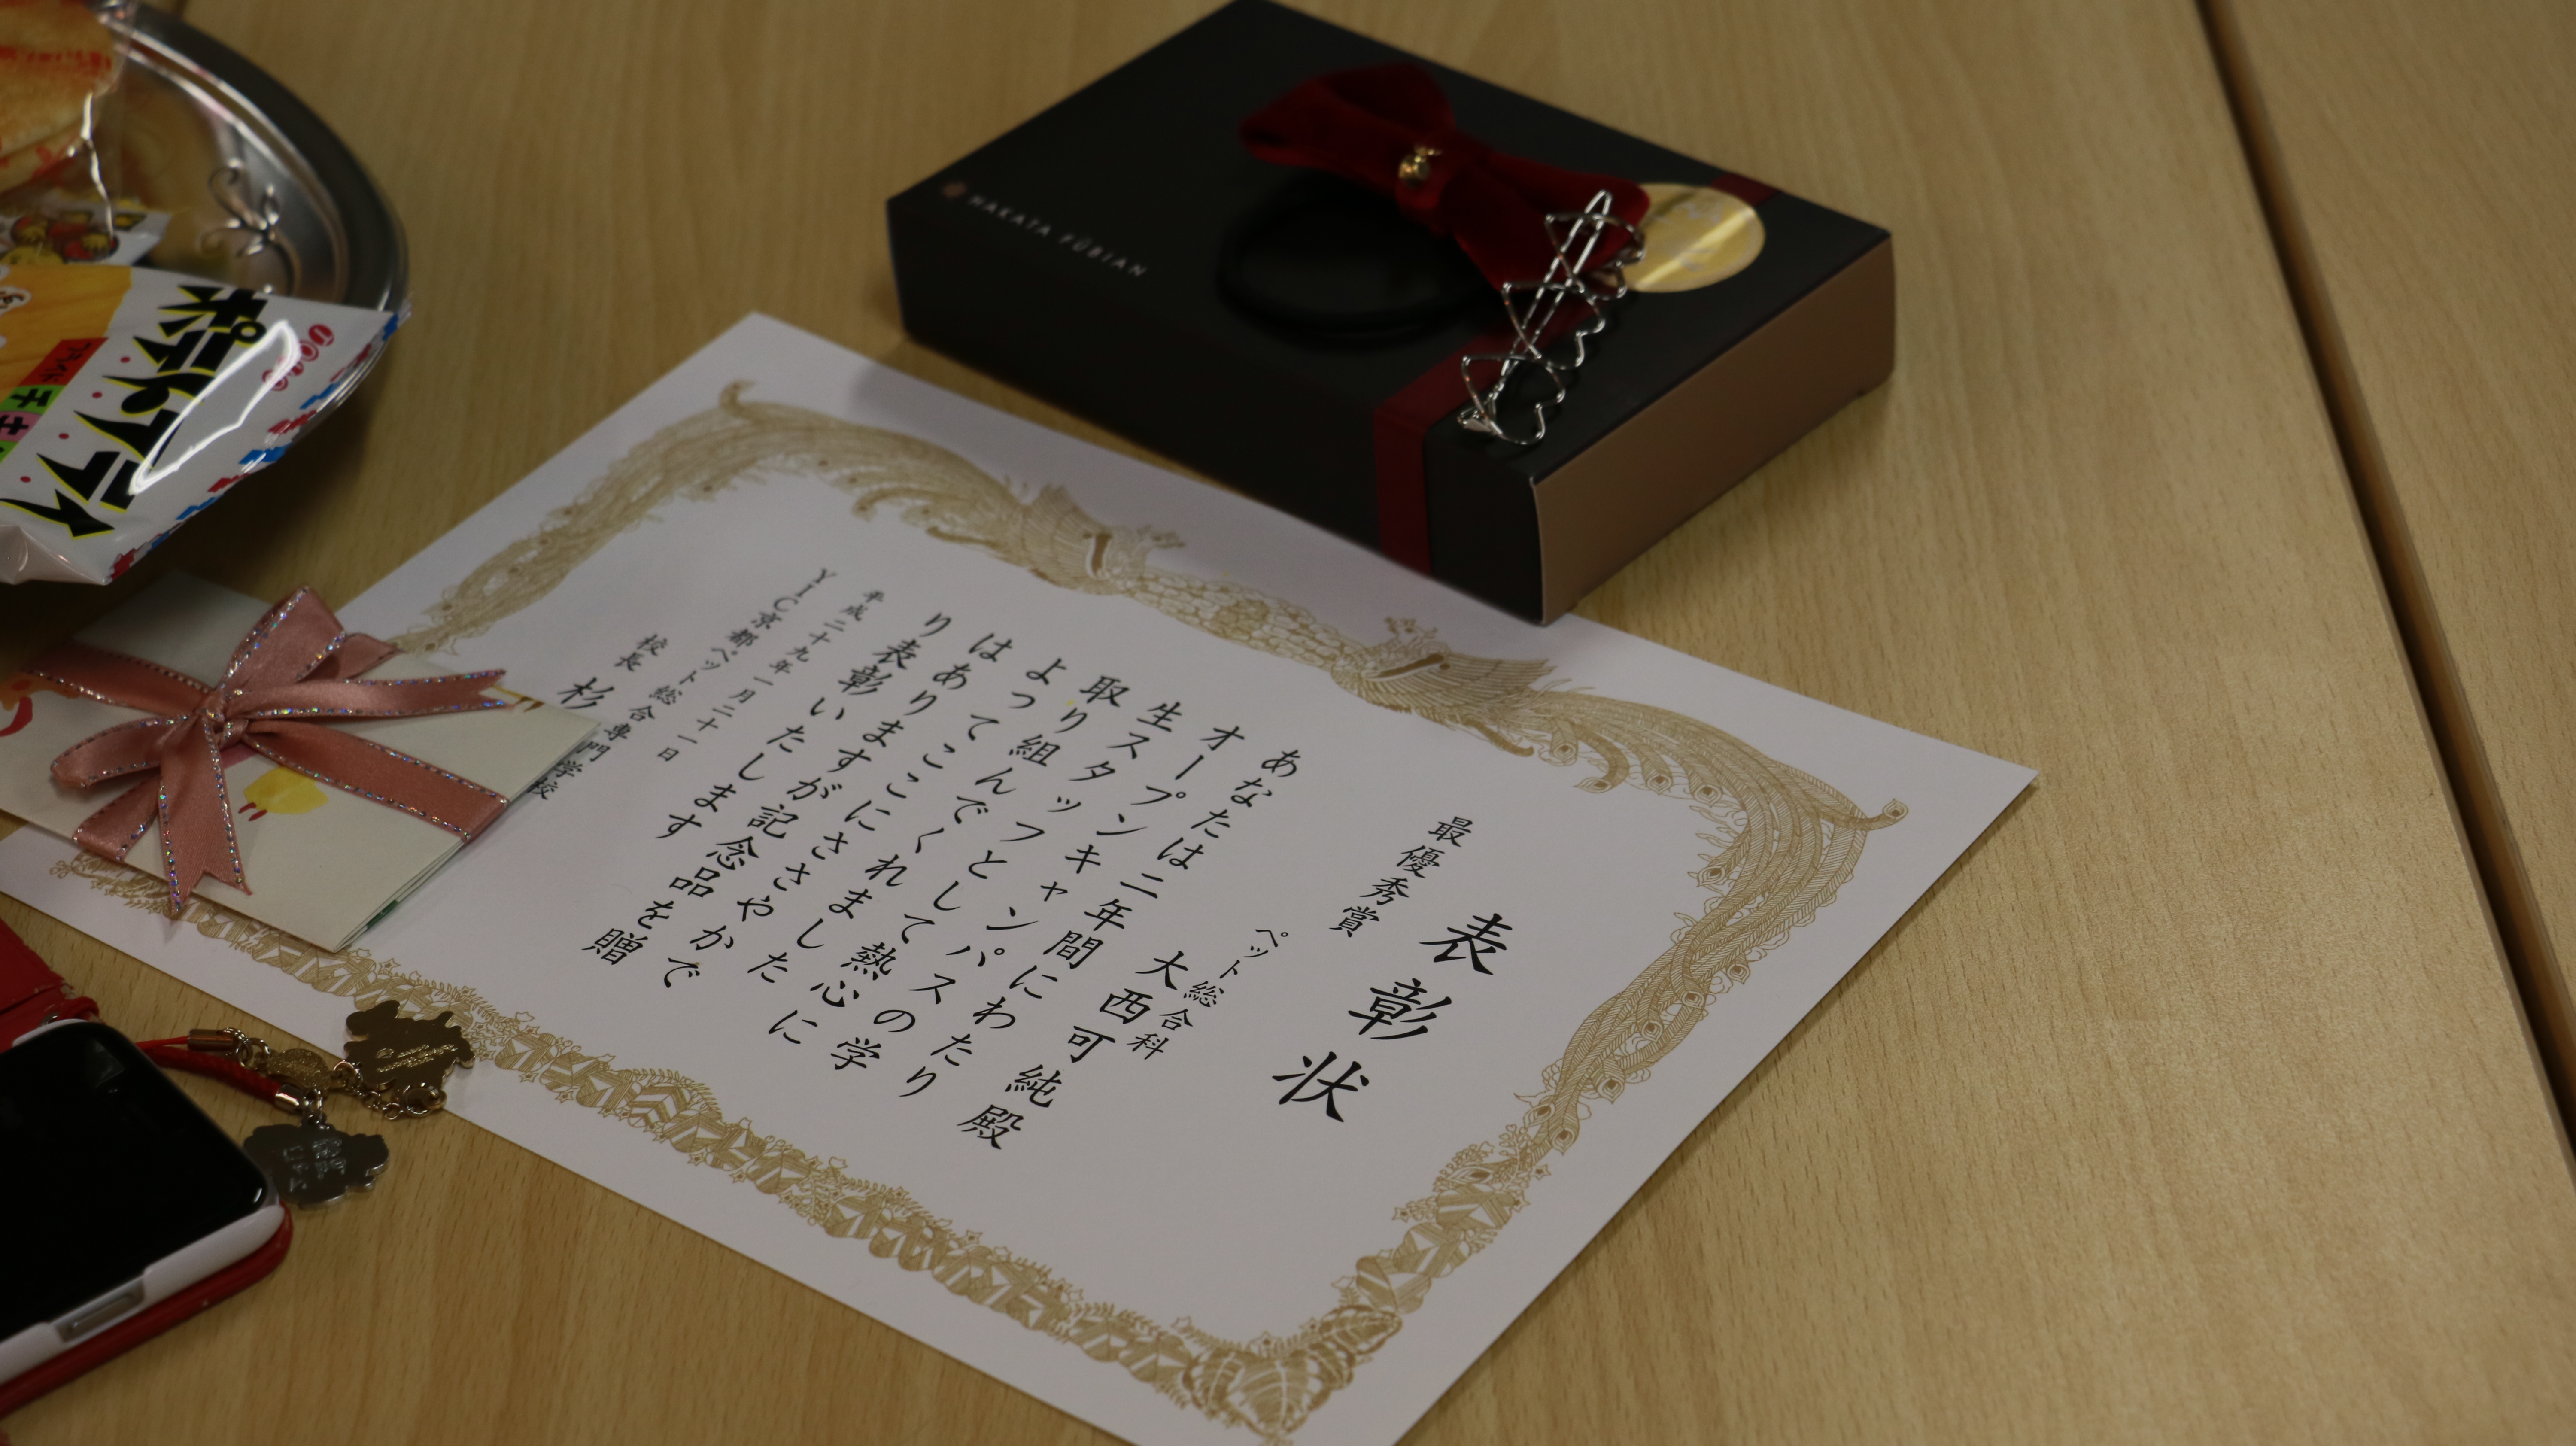 HAKATA FŪBIAN
ポテトフライ
フライドチキ
表彰状
最優秀賞
ペット総合科
大西可純殿
あなたは二年間にわたり
オープンキャンパスの学
生スタッフとして熱心に
取り組んでくれました
よってここにささやかで
はありますが記念品を贈
り表彰いたします
平成二十九年一月二十一日
YIC京都ペット総合専門学校
校長 杉